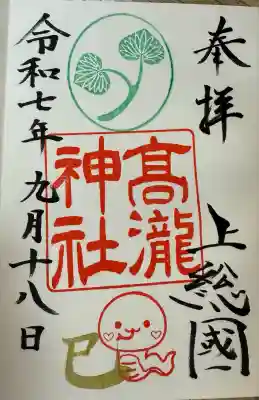 奉拝
上総國
髙瀧
神社
令和七年 九月十八日
巳